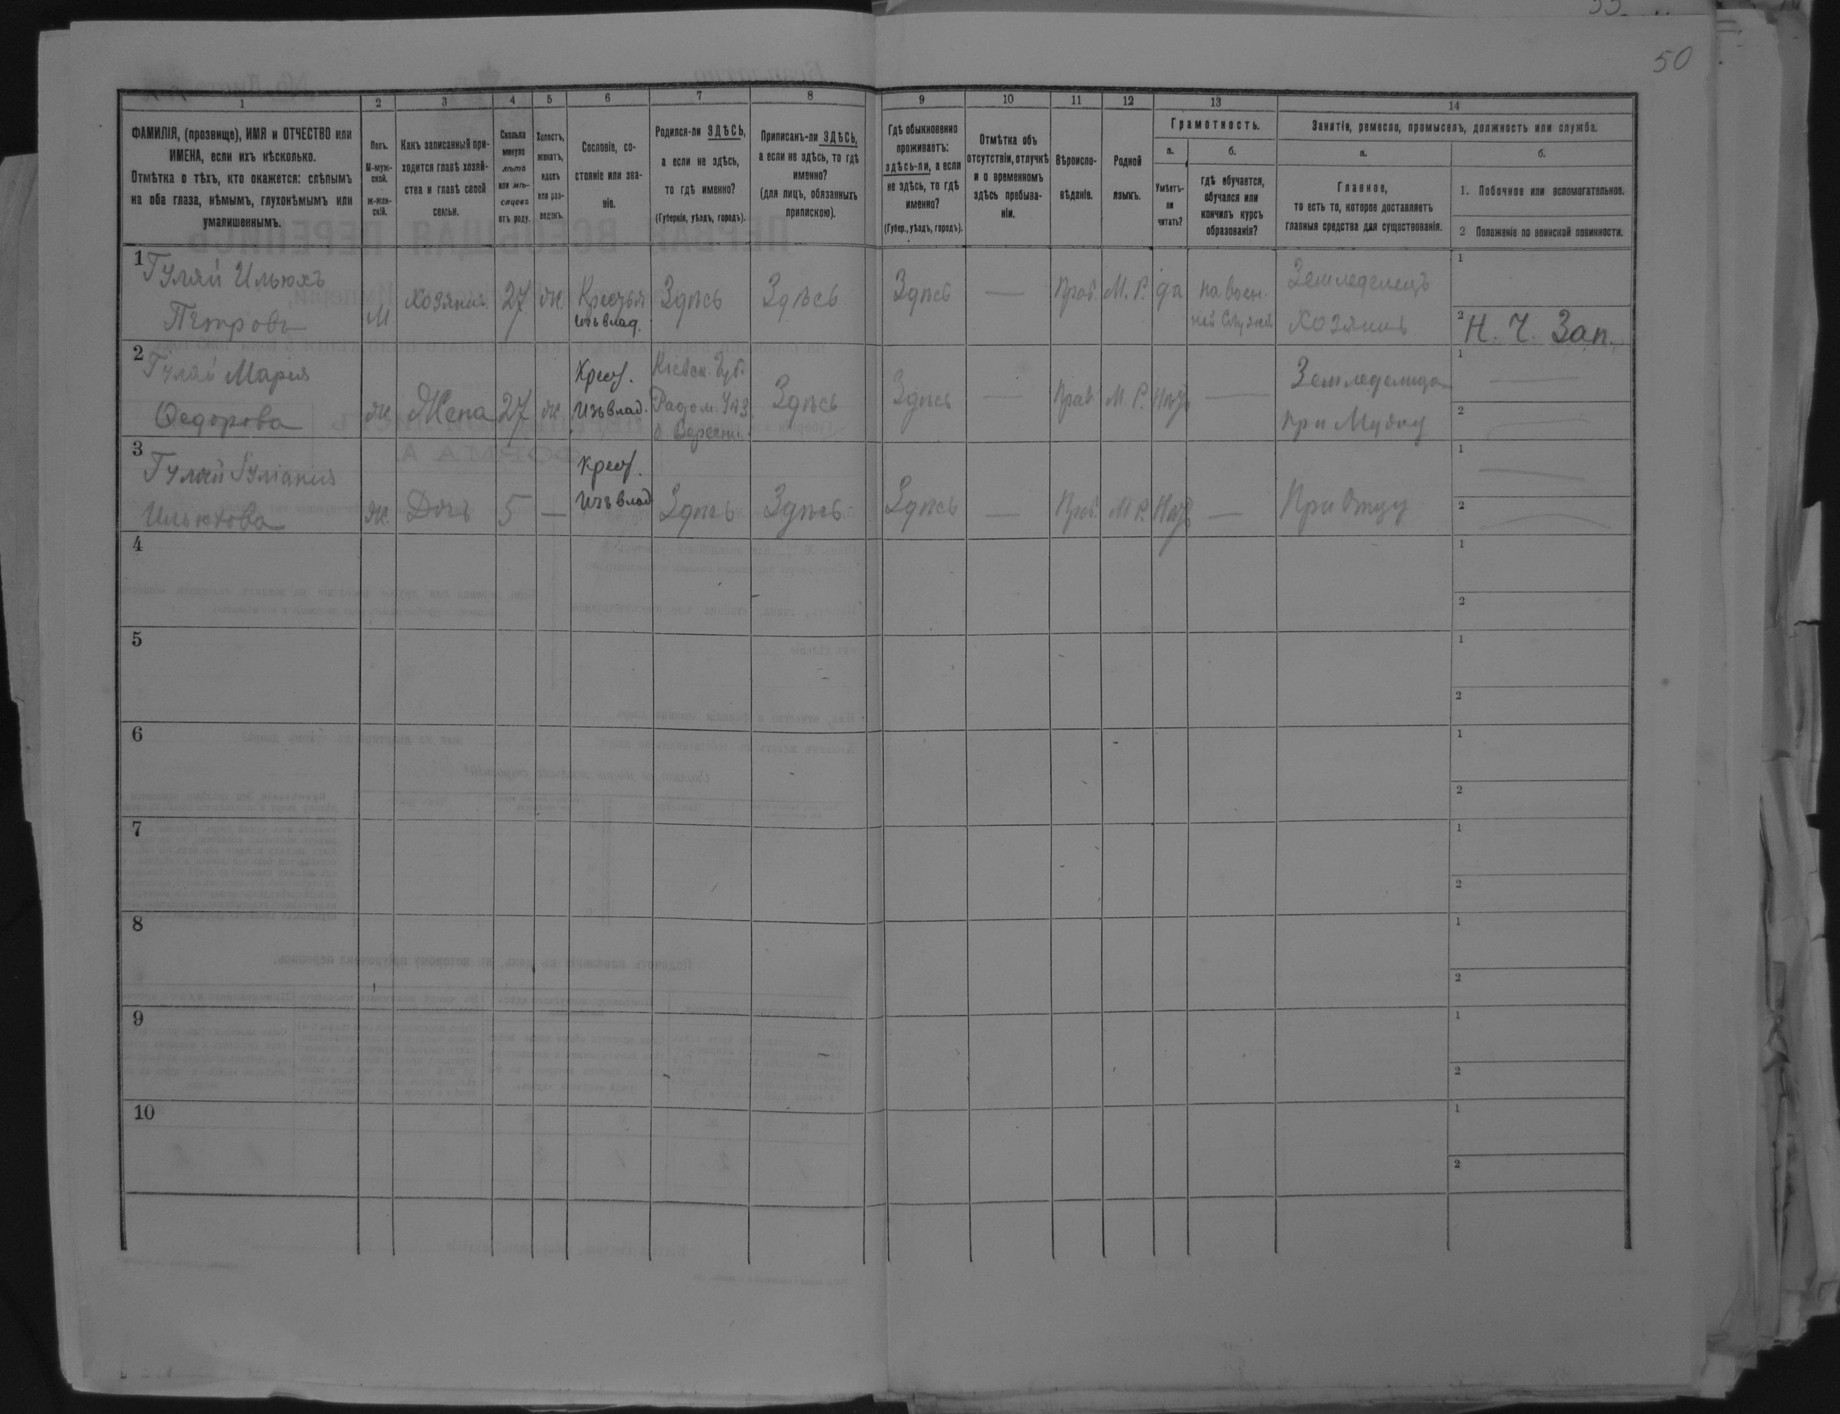 50
1 2 3 4 5 6 7 8 9 10 11 12 13 14
ФАМИЛІЯ, (прозвище), ИМЯ и ОТЧЕСТВО или
ИМЕНА, если ихъ нѣсколько.
Отмѣтка о тѣхъ, кто окажется: слѣпымъ
на оба глаза, нѣмымъ, глухонѣмымъ или
умалишеннымъ.
Полъ.
М-муж-
ской.
ж-жен-
скій.
Какъ записанный при-
ходится главѣ хозяй-
ства и главѣ своей
семьи.
Сколько
минуло
лѣтъ
или мѣ-
сяцевъ
отъ роду.
Холостъ,
женатъ,
вдовъ
или раз-
веденъ.
Сословіе, со-
стояніе или зва-
ніе.
Родился-ли ЗДѢСЬ,
а если не здѣсь,
то гдѣ именно?
(Губернія, уѣздъ, городъ).
Приписанъ-ли ЗДѢСЬ,
а если не здѣсь, то гдѣ
именно?
(для лицъ, обязанныхъ
припискою).
Гдѣ обыкновенно
проживаетъ:
здѣсь-ли, а если
не здѣсь, то гдѣ
именно?
(Губер., уѣздъ, городъ).
Отмѣтка объ
отсутствіи, отлучкѣ
и о временномъ
здѣсь пребыва-
ніи.
Вѣроиспо-
вѣданіе.
Родной
языкъ.
Грамотность.
а.
Умѣетъ-
ли
читать?
б.
гдѣ обучается,
обучался или
кончилъ курсъ
образованія?
Занятіе, ремесло, промыселъ, должность или служба.
а.
Главное,
то есть то, которое доставляетъ
главныя средства для существованія.
б.
1. Побочное или вспомогательное.
2 Положеніе по воинской повинности.
1
Гуляй Ильюхъ
Петровъ
М
Хозяинъ
27
ж.
Крестья
изъ влад.
Здѣсь
Здѣсь
Здѣсь
—
Прав.
М. Р.
да
на воен
ной Службѣ
Земледелецъ
Хозяинъ
1
2
Н. Ч. Зап.
2
Гуляй Мария
Федорова
ж
Жена
27
ж.
Крест.
Изъ влад.
Кіевск. Губ.
Радом. Уѣз.
Здѣсь
Здѣсь
—
Прав
М Р.
Нѣтъ
—
Земледелица
при Мужу
1
2
3
Гуляй
Ильюхова
ж.
Дочь
5
—
Крест.
Изъ влад
Здѣсь
Здѣсь
Здѣсь
—
Прав.
М Р.
Нѣтъ
—
При Отцу
1
2
4
1
2
5
1
2
6
1
2
7
1
2
8
1
2
9
1
2
10
1
2